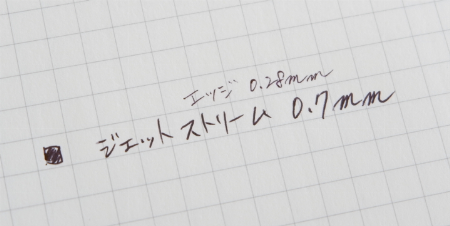 エッジ 0.28mm
ジェットストリーム 0.7mm